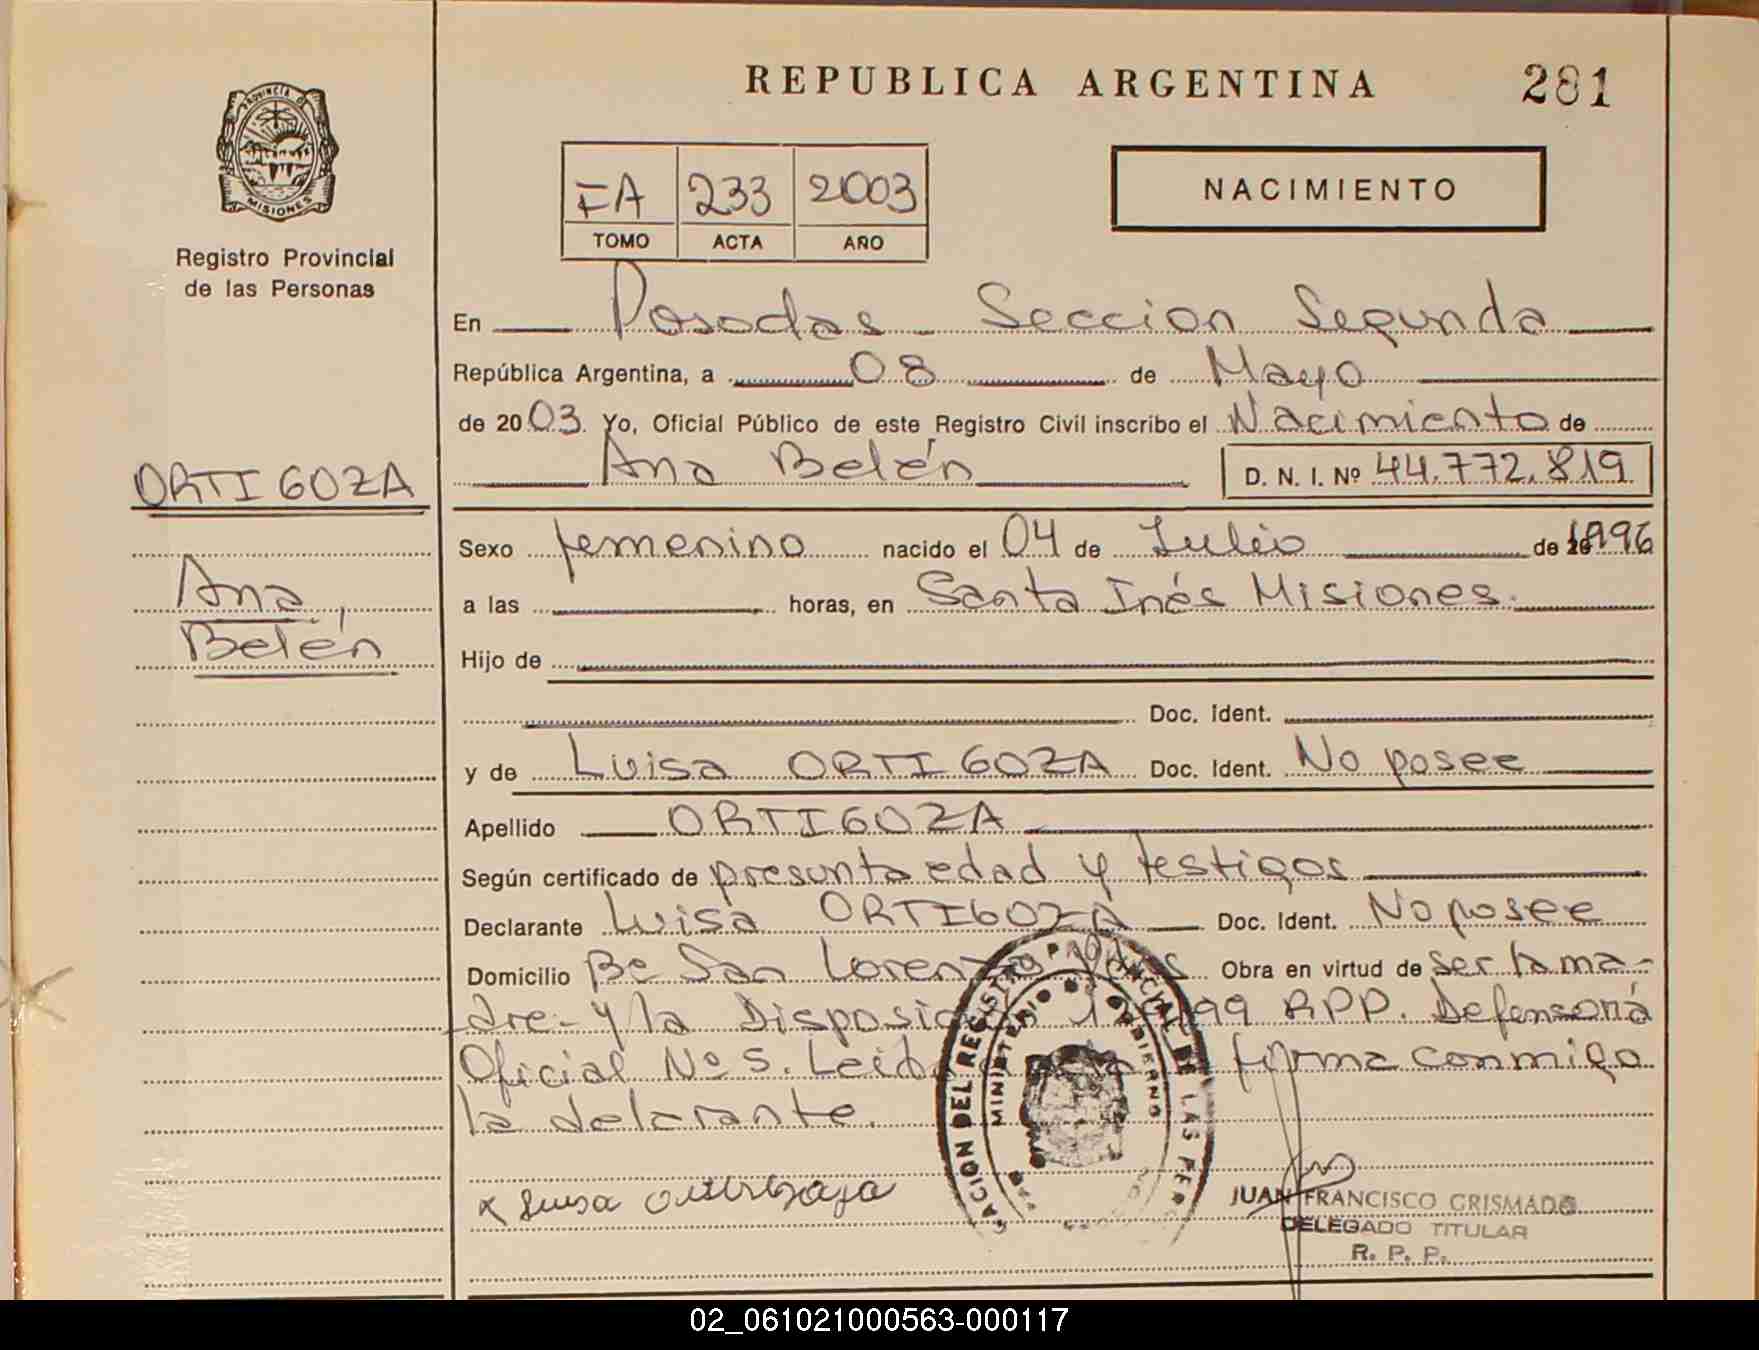 REPUBLICA ARGENTINA
281
PROVINCIA D
MISIONES
Registro Provincial
de las Personas
FA 233 2003
TOMO ACTA AÑO
NACIMIENTO
En Posadas - Seccion Segunda
República Argentina, a 08 de Mayo
de 2003. Yo, Oficial Público de este Registro Civil inscribo el Nacimiento de
Ana Belén D. N. I. Nº 44.772.819
ORTIGOZA
Ana
Belén
Sexo femenino nacido el 04 de Julio de 1996
a las horas, en Santa Inés Misiones.
Hijo de
Doc. Ident.
y de Luisa ORTIGOZA Doc. Ident. No posee
Apellido ORTIGOZA
Según certificado de presunta edad y testigos
Declarante Luisa ORTIGOZA Doc. Ident. No posee
Domicilio Bº San Lorenzo Obra en virtud de ser la ma-
dre- y la Disposición 99 RPP. Defensoria
Oficial Nº 5. Leida firma conmigo
la delarante.
x Luisa
ACION DEL REGISTRO PROVINCIAL DE LAS PERSO
MINISTERIO DE GOBIERNO
JUAN FRANCISCO GRISMADO
DELEGADO TITULAR
R. P. P.
02_061021000563-000117